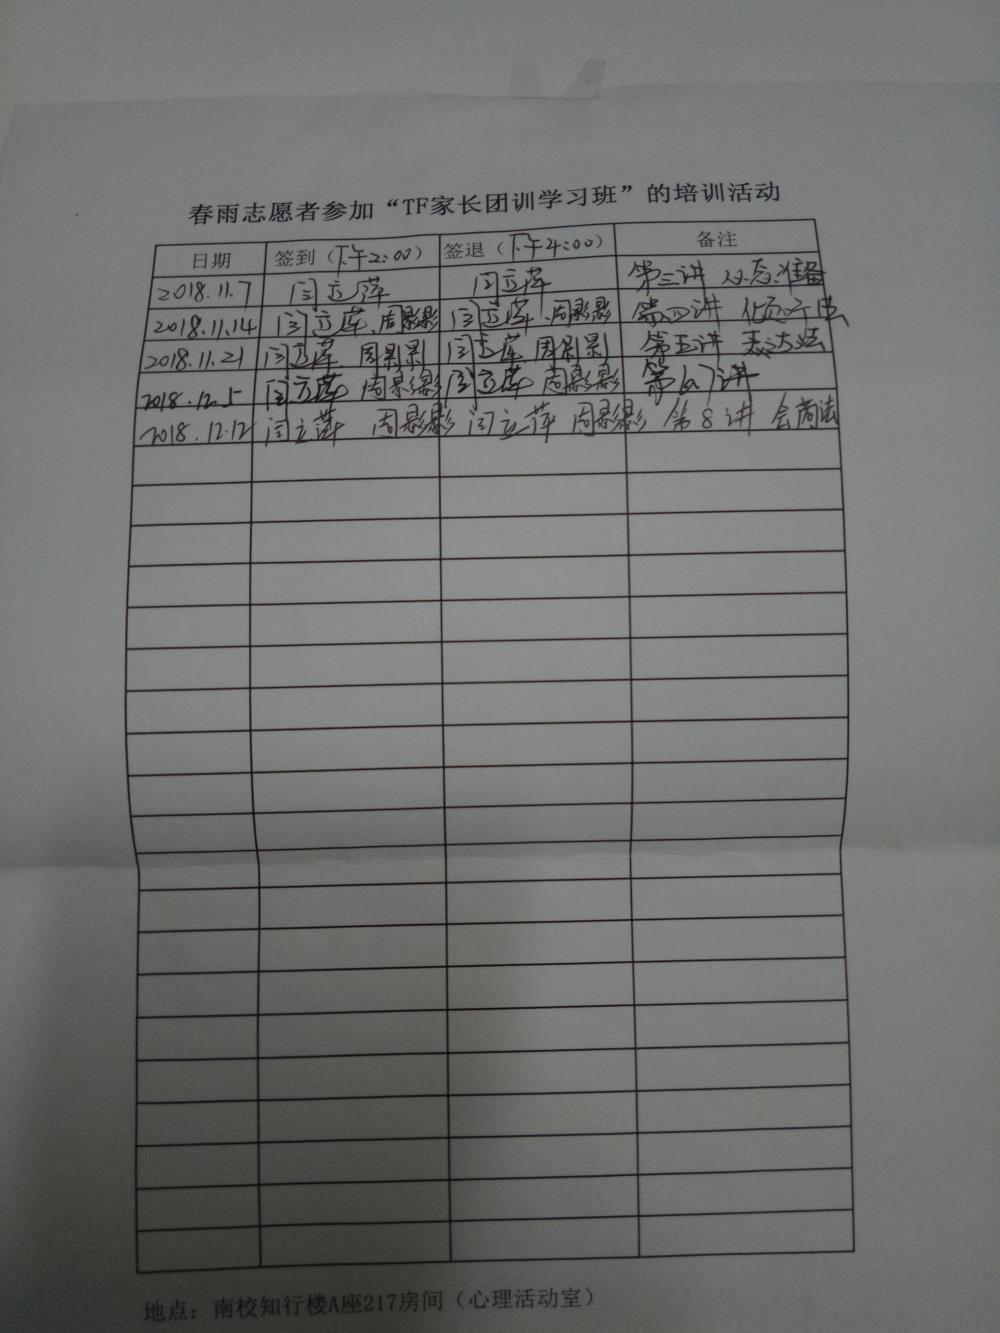 春雨志愿者参加“TF家长团训学习班”的培训活动
日期 签到（下午2:00） 签退（下午4:00） 备注
2018.11.7 闫立萍 闫立萍 第三讲 心态准备
2018.11.14 闫立萍、周影影 闫立萍、周影影 第四讲 倾听法
2018.11.21 闫立萍 周影影 闫立萍 周影影 第五讲 表达法
2018.12.5 闫立萍 周影影 闫立萍 周影影 第6.7讲
2018.12.12 闫立萍 周影影 闫立萍 周影影 第8讲 会商法
地点：南校知行楼A座217房间（心理活动室）